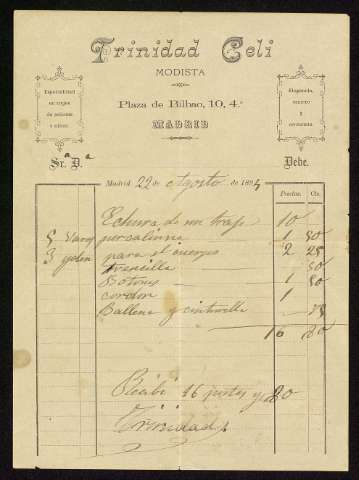 Trinidad Celi
MODISTA
Plaza de Bilbao, 10, 4.º
MADRID
Especialidad
en trajes
de señoras
y niños
Elegancia,
esmero
y
economía.
Sr.ª D.ª
Debe.
Madrid 22 de Agosto de 189
Pesetas. Cts.
Echura de un traje 10
5 varas percalina 1 50
3 para el cuerpo 2 25
trencilla 50
Botones 1 50
cordon 1
Ballena y cinturilla
16 80
Recibi 16 pesetas y 80
Trinidad